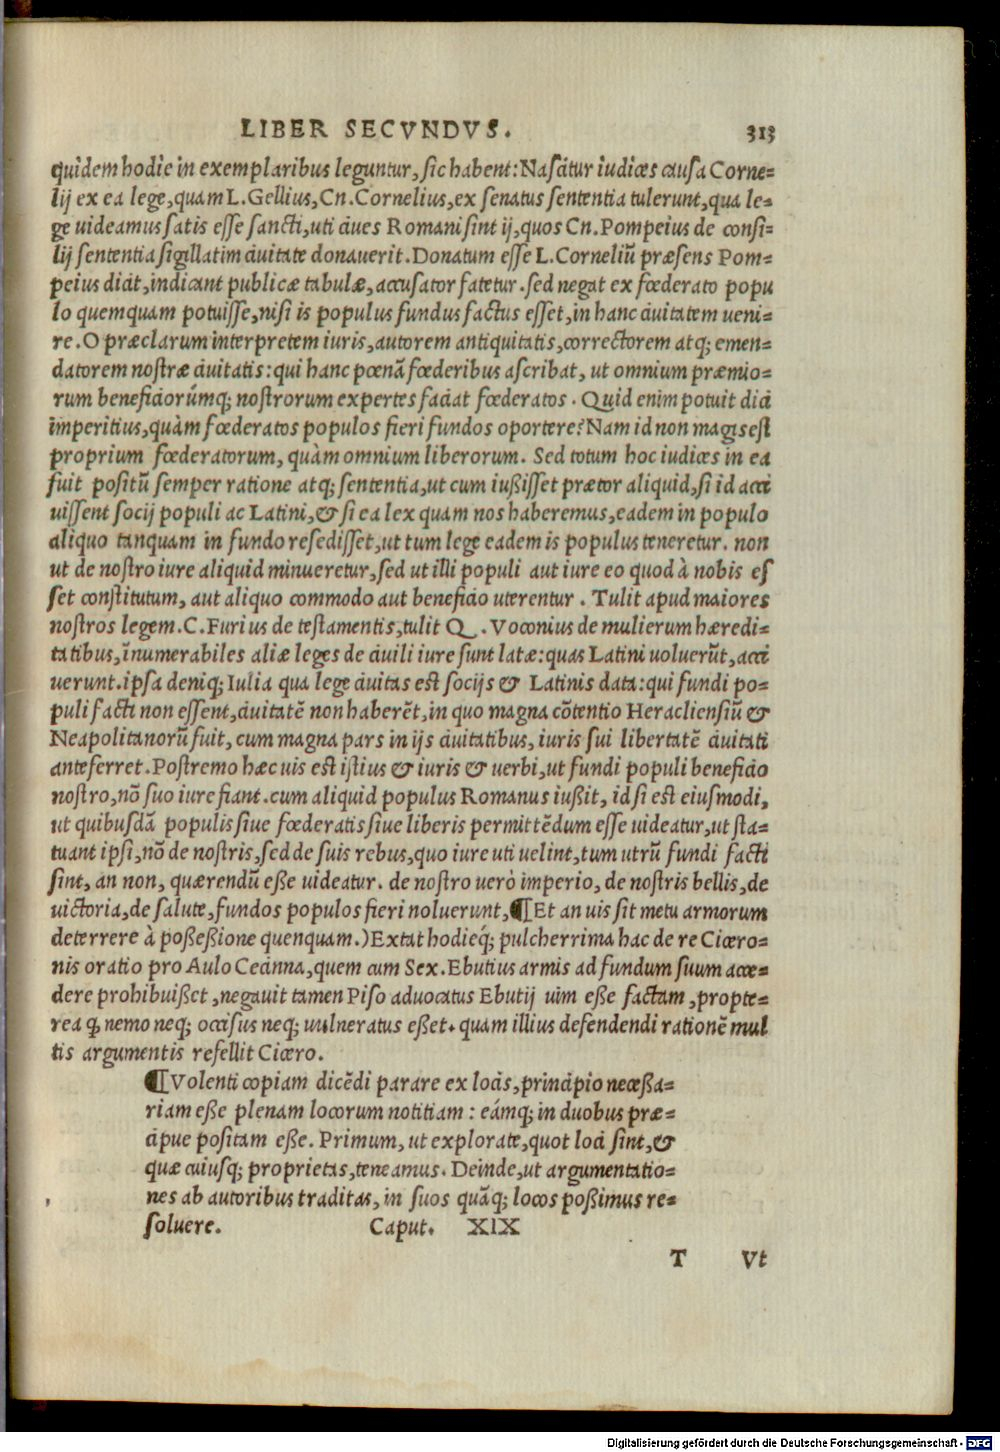 LIBER SECVNDVS. 313
quidem hodie in exemplaribus leguntur, sic habent: Nascitur iudices causa Corne=
lij ex ea lege, quam L. Gellius, Cn. Cornelius, ex senatus sententia tulerunt, qua le=
ge uideamus satis esse sancti, uti ciues Romani sint ij, quos Cn. Pompeius de consi=
lij sententia sigillatim ciuitate donauerit. Donatum esse L. Corneliũ præsens Pom=
peius dicit, indicant publicæ tabulæ, accusator fatetur. sed negat ex fœderato popu
lo quemquam potuisse, nisi is populus fundus factus esset, in hanc ciuitatem ueni=
re. O præclarum interpretem iuris, autorem antiquitatis, correctorem atq; emen=
datorem nostræ ciuitatis: qui hanc pœnã fœderibus ascribat, ut omnium præmio=
rum beneficiorúmq; nostrorum expertes faciat fœderatos. Quid enim potuit dici
imperitius, quàm fœderatos populos fieri fundos oportere? Nam id non magis est
proprium fœderatorum, quàm omnium liberorum. Sed totum hoc iudices in ea
fuit positũ semper ratione atq; sententia, ut cum iußisset prætor aliquid, si id acci
uissent socij populi ac Latini, & si ea lex quam nos haberemus, eadem in populo
aliquo tanquam in fundo resedisset, ut tum lege eadem is populus teneretur. non
ut de nostro iure aliquid minueretur, sed ut illi populi aut iure eo quod à nobis es
set constitutum, aut aliquo commodo aut beneficio uterentur. Tulit apud maiores
nostros legem. C. Furius de testamentis, tulit Q. Voconius de mulierum hæredi=
tatibus, ĩnumerabiles aliæ leges de ciuili iure sunt latæ: quas Latini uoluerũt, acci
uerunt. ipsa deniq; Iulia qua lege ciuitas est socijs & Latinis data: qui fundi po=
puli facti non essent, ciuitatẽ non haberẽt, in quo magna cõtentio Heracliensiũ &
Neapolitanorũ fuit, cum magna pars in ijs ciuitatibus, iuris sui libertatẽ ciuitati
anteferret. Postremo hæc uis est istius & iuris & uerbi, ut fundi populi beneficio
nostro, nõ suo iure fiant. cum aliquid populus Romanus iußit, id si est eiusmodi,
ut quibusdã populis siue fœderatis siue liberis permittẽdum esse uideatur, ut sta=
tuant ipsi, nõ de nostris, sed de suis rebus, quo iure uti uelint, tum utrũ fundi facti
sint, an non, quærendũ eße uideatur. de nostro uerò imperio, de nostris bellis, de
uictoria, de salute, fundos populos fieri noluerunt, ¶ Et an uis sit metu armorum
deterrere à poßeßione quenquam.) Extat hodieq́; pulcherrima hac de re Cicero=
nis oratio pro Aulo Cecinna, quem cum Sex. Ebutius armis ad fundum suum acce=
dere prohibuißet, negauit tamen Piso aduocatus Ebutij uim eße factam, propte=
rea ꝙ nemo neq; occisus neq; uulneratus eßet. quam illius defendendi rationẽ mul
tis argumentis refellit Cicero.
¶ Volenti copiam dicẽdi parare ex locis, principio neceßa=
riam eße plenam locorum notitiam: eámq; in duobus præ=
cipue positam eße. Primum, ut explorate, quot loci sint, &
quæ cuiusq; proprietas, teneamus. Deinde, ut argumentatio=
nes ab autoribus traditas, in suos quãq; locos poßimus re=
soluere. Caput. XIX
T Vt
Digitalisierung gefördert durch die Deutsche Forschungsgemeinschaft - DFG